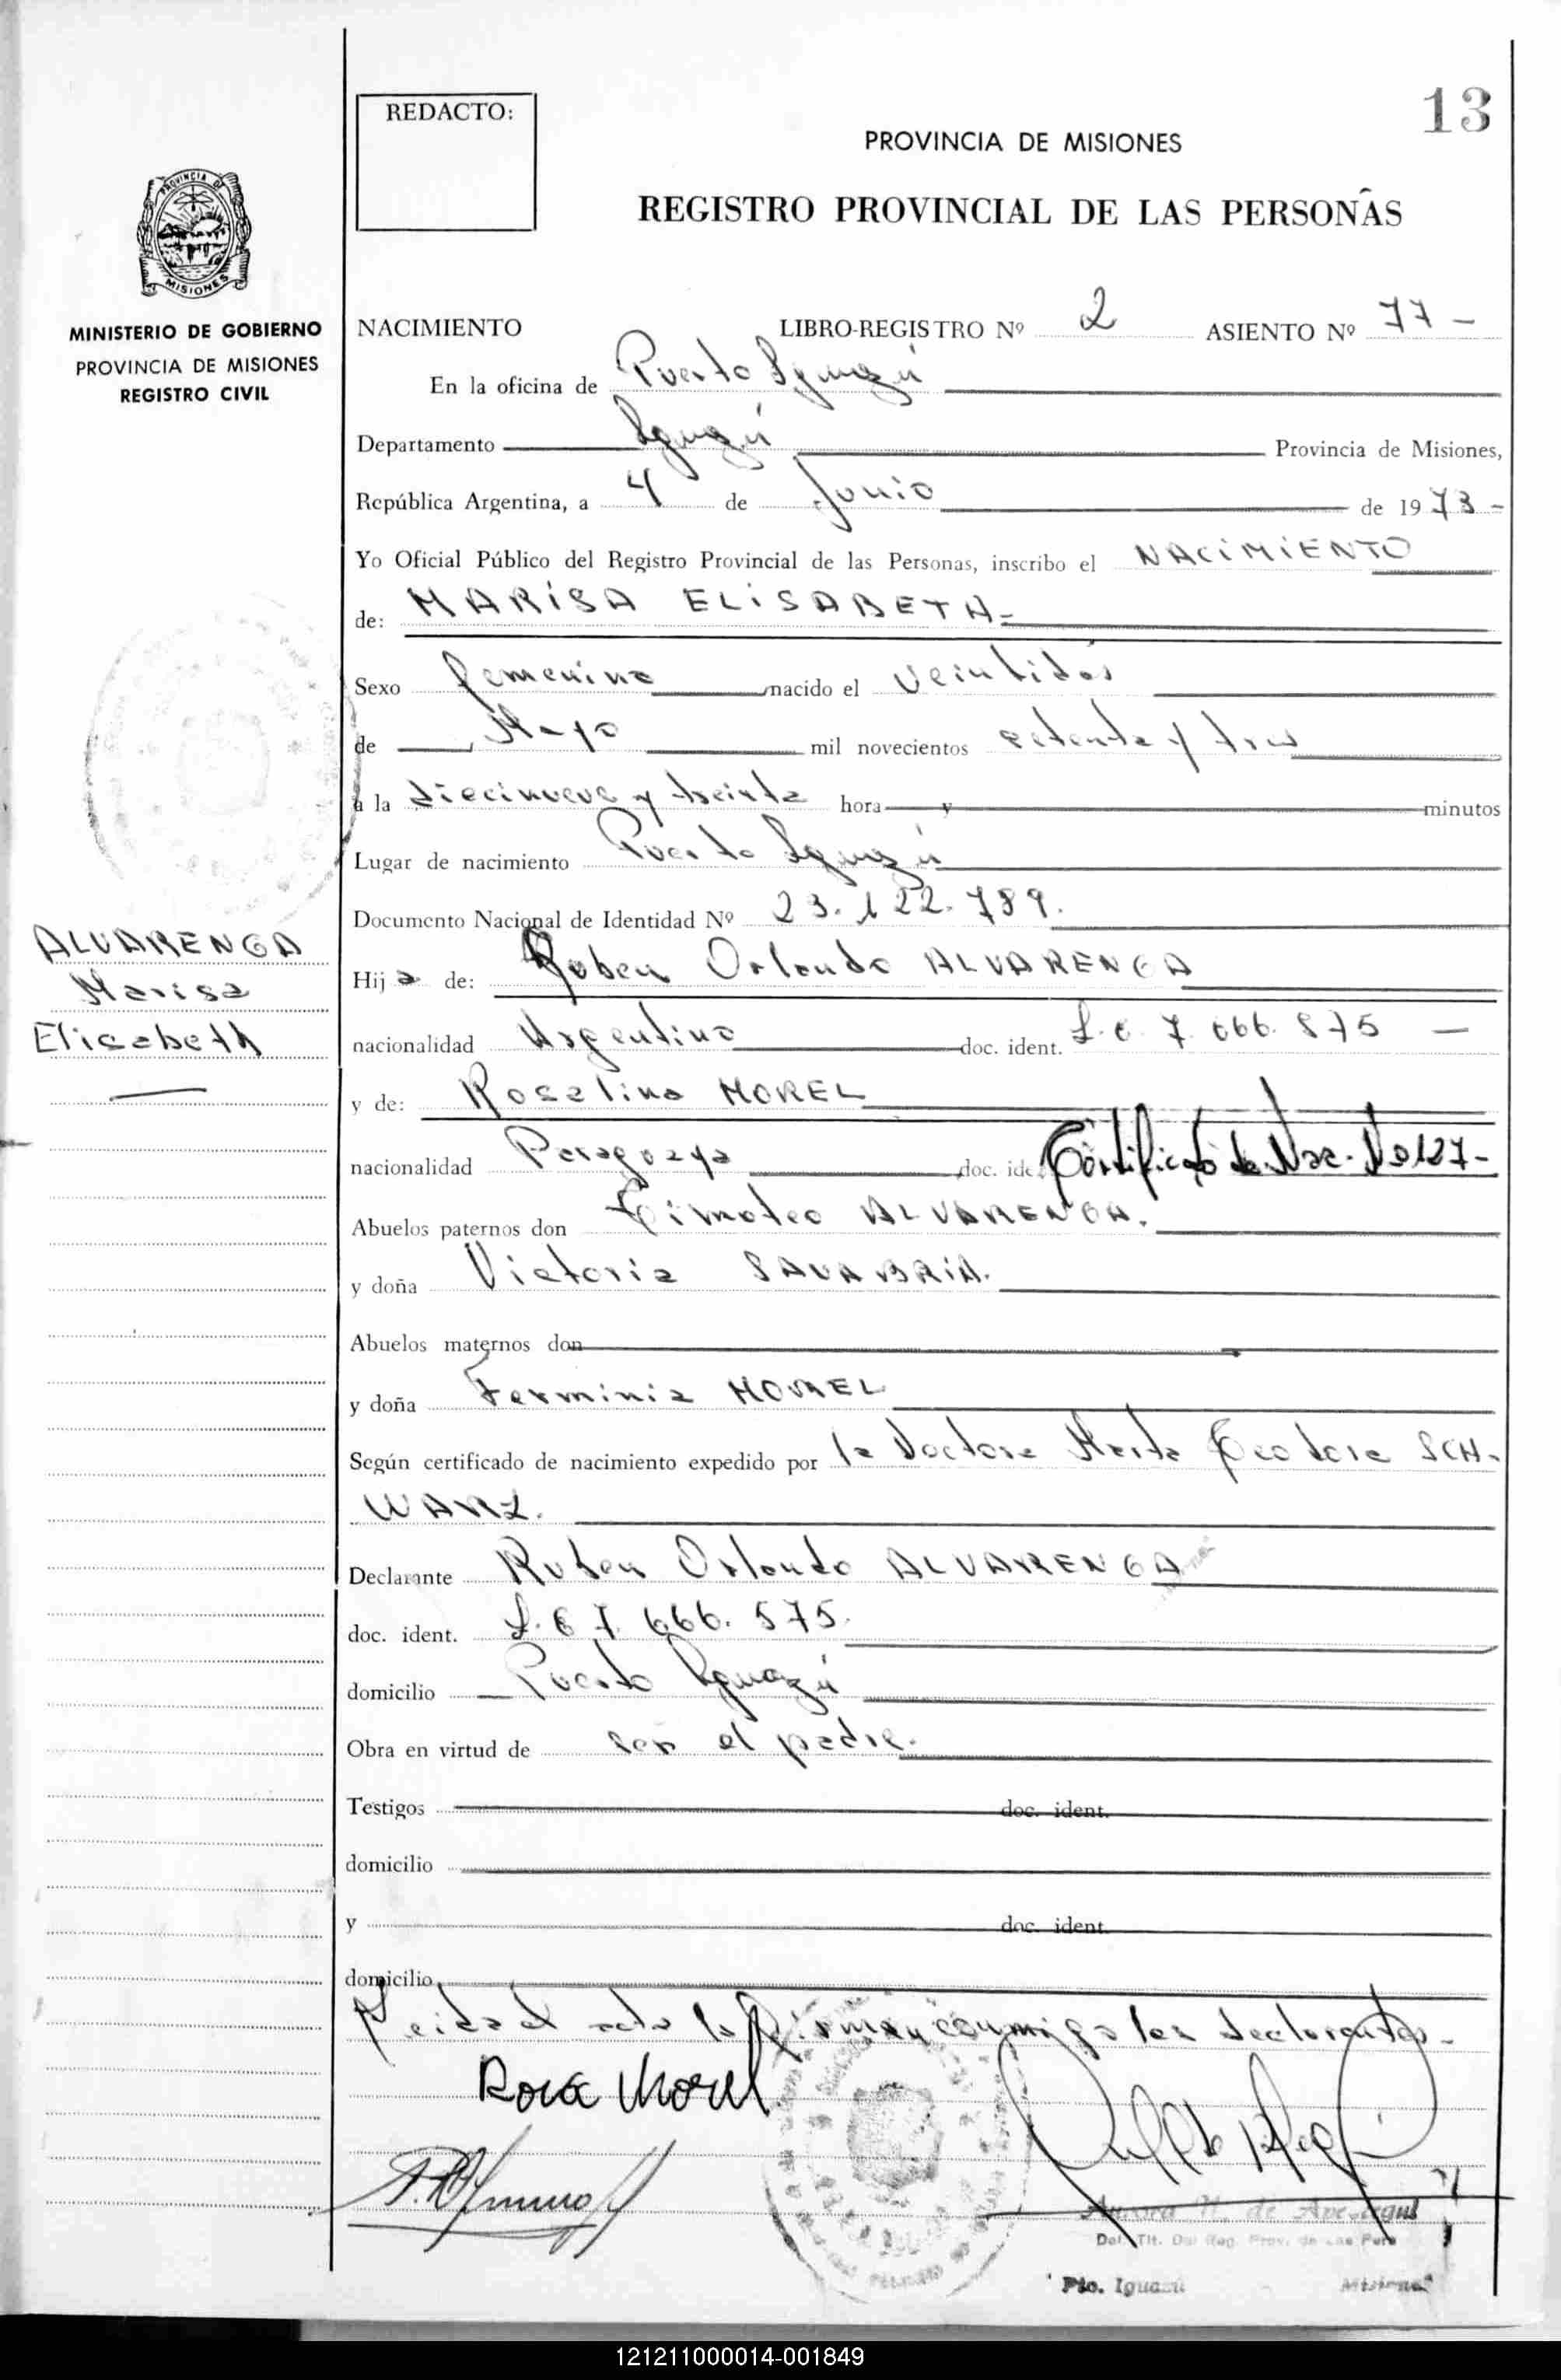 13
REDACTO:
PROVINCIA DE MISIONES
REGISTRO PROVINCIAL DE LAS PERSONAS
PROVINCIA DE
MISIONES
MINISTERIO DE GOBIERNO
PROVINCIA DE MISIONES
REGISTRO CIVIL
NACIMIENTO LIBRO-REGISTRO Nº 2 ASIENTO Nº 77 -
En la oficina de Puerto Iguazú
Departamento Iguazú Provincia de Misiones,
República Argentina, a 4 de Junio de 1973 -
Yo Oficial Público del Registro Provincial de las Personas, inscribo el NACIMIENTO
de: MARISA ELISABETH -
Sexo femenino nacido el veintidós
de Mayo mil novecientos setenta y tres
a la diecinueve y treinta hora y minutos
Lugar de nacimiento Puerto Iguazú
Documento Nacional de Identidad Nº 23.122.789.
ALVARENGA
Marisa
Elisabeth
Hija de: Ruben Orlando ALVARENGA
nacionalidad Argentino doc. ident. L.E 7.666.575 -
y de: Roselina MOREL
nacionalidad Paraguaya doc. ide Certificado de Nac. Nº 127 -
Abuelos paternos don Timoteo ALVARENGA.
y doña Victoria SANABRIA.
Abuelos maternos don
y doña Ferminia MOREL
Según certificado de nacimiento expedido por la Doctora Marta Teodora SCH-
WARZ.
Declarante Ruben Orlando ALVARENGA
doc. ident. L.E 7.666.575.
domicilio Puerto Iguazú
Obra en virtud de ser el padre.
Testigos doc. ident.
domicilio
y doc. ident.
domicilio
Leida el acta la firman conmigo los declarantes -
Rosa Morel
Aurora de
Del. Tit. Del Reg. Prov. de Las Pers
Pto. Iguazú Misiones
121211000014-001849